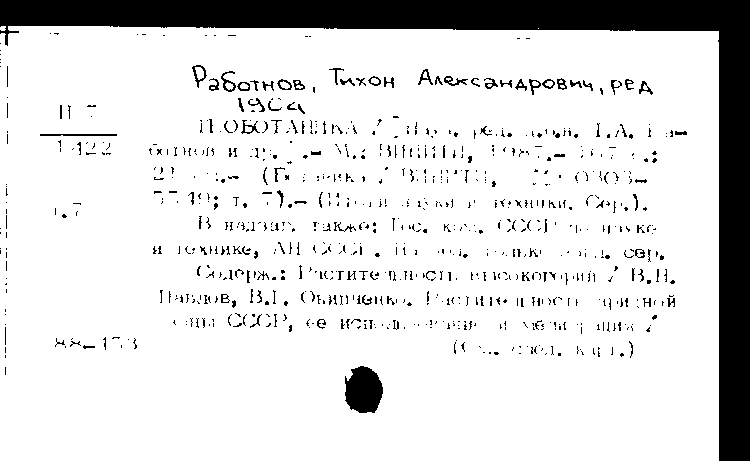 Работнов, Тихон Александрович, ред
1904
П 7
1422
т.7
ГЕОБОТАНИКА / [Науч. ред. д.б.н. Т.А. Ра-
ботнов и др.].- М.: ВИНИТИ, 1987.- 167 с.;
21 см.- (Ботаника / ВИНИТИ, 0303-
т. 7).- (Итоги науки и техники. Сер.).
В надзаг. также: Гос. ком. СССР по науке
и технике, АН СССР. На обл. только загл. сер.
Содерж.: Растительность высокогорий / В.Н.
Павлов, В.Г. Онипченко. Растительность аридной
зоны СССР, ее использование и мелиорация /
88-153
(См. след. карт.)